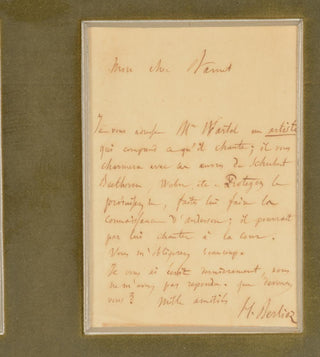 Mon cher
Je vous envoie Mr Wartel un artiste
qui comprend ce qu'il chante; il vous
charmera avec les œuvres de Schubert
Beethoven, Weber etc. Protegez le
faites lui faire la
connaissance d' il pourrait
par lui chanter à la cour.
Vous m'obligerez beaucoup.
Je vous ai écrit vous
ne m'avez pas repondu. que devenez
vous? mille amitiés
H. Berlioz